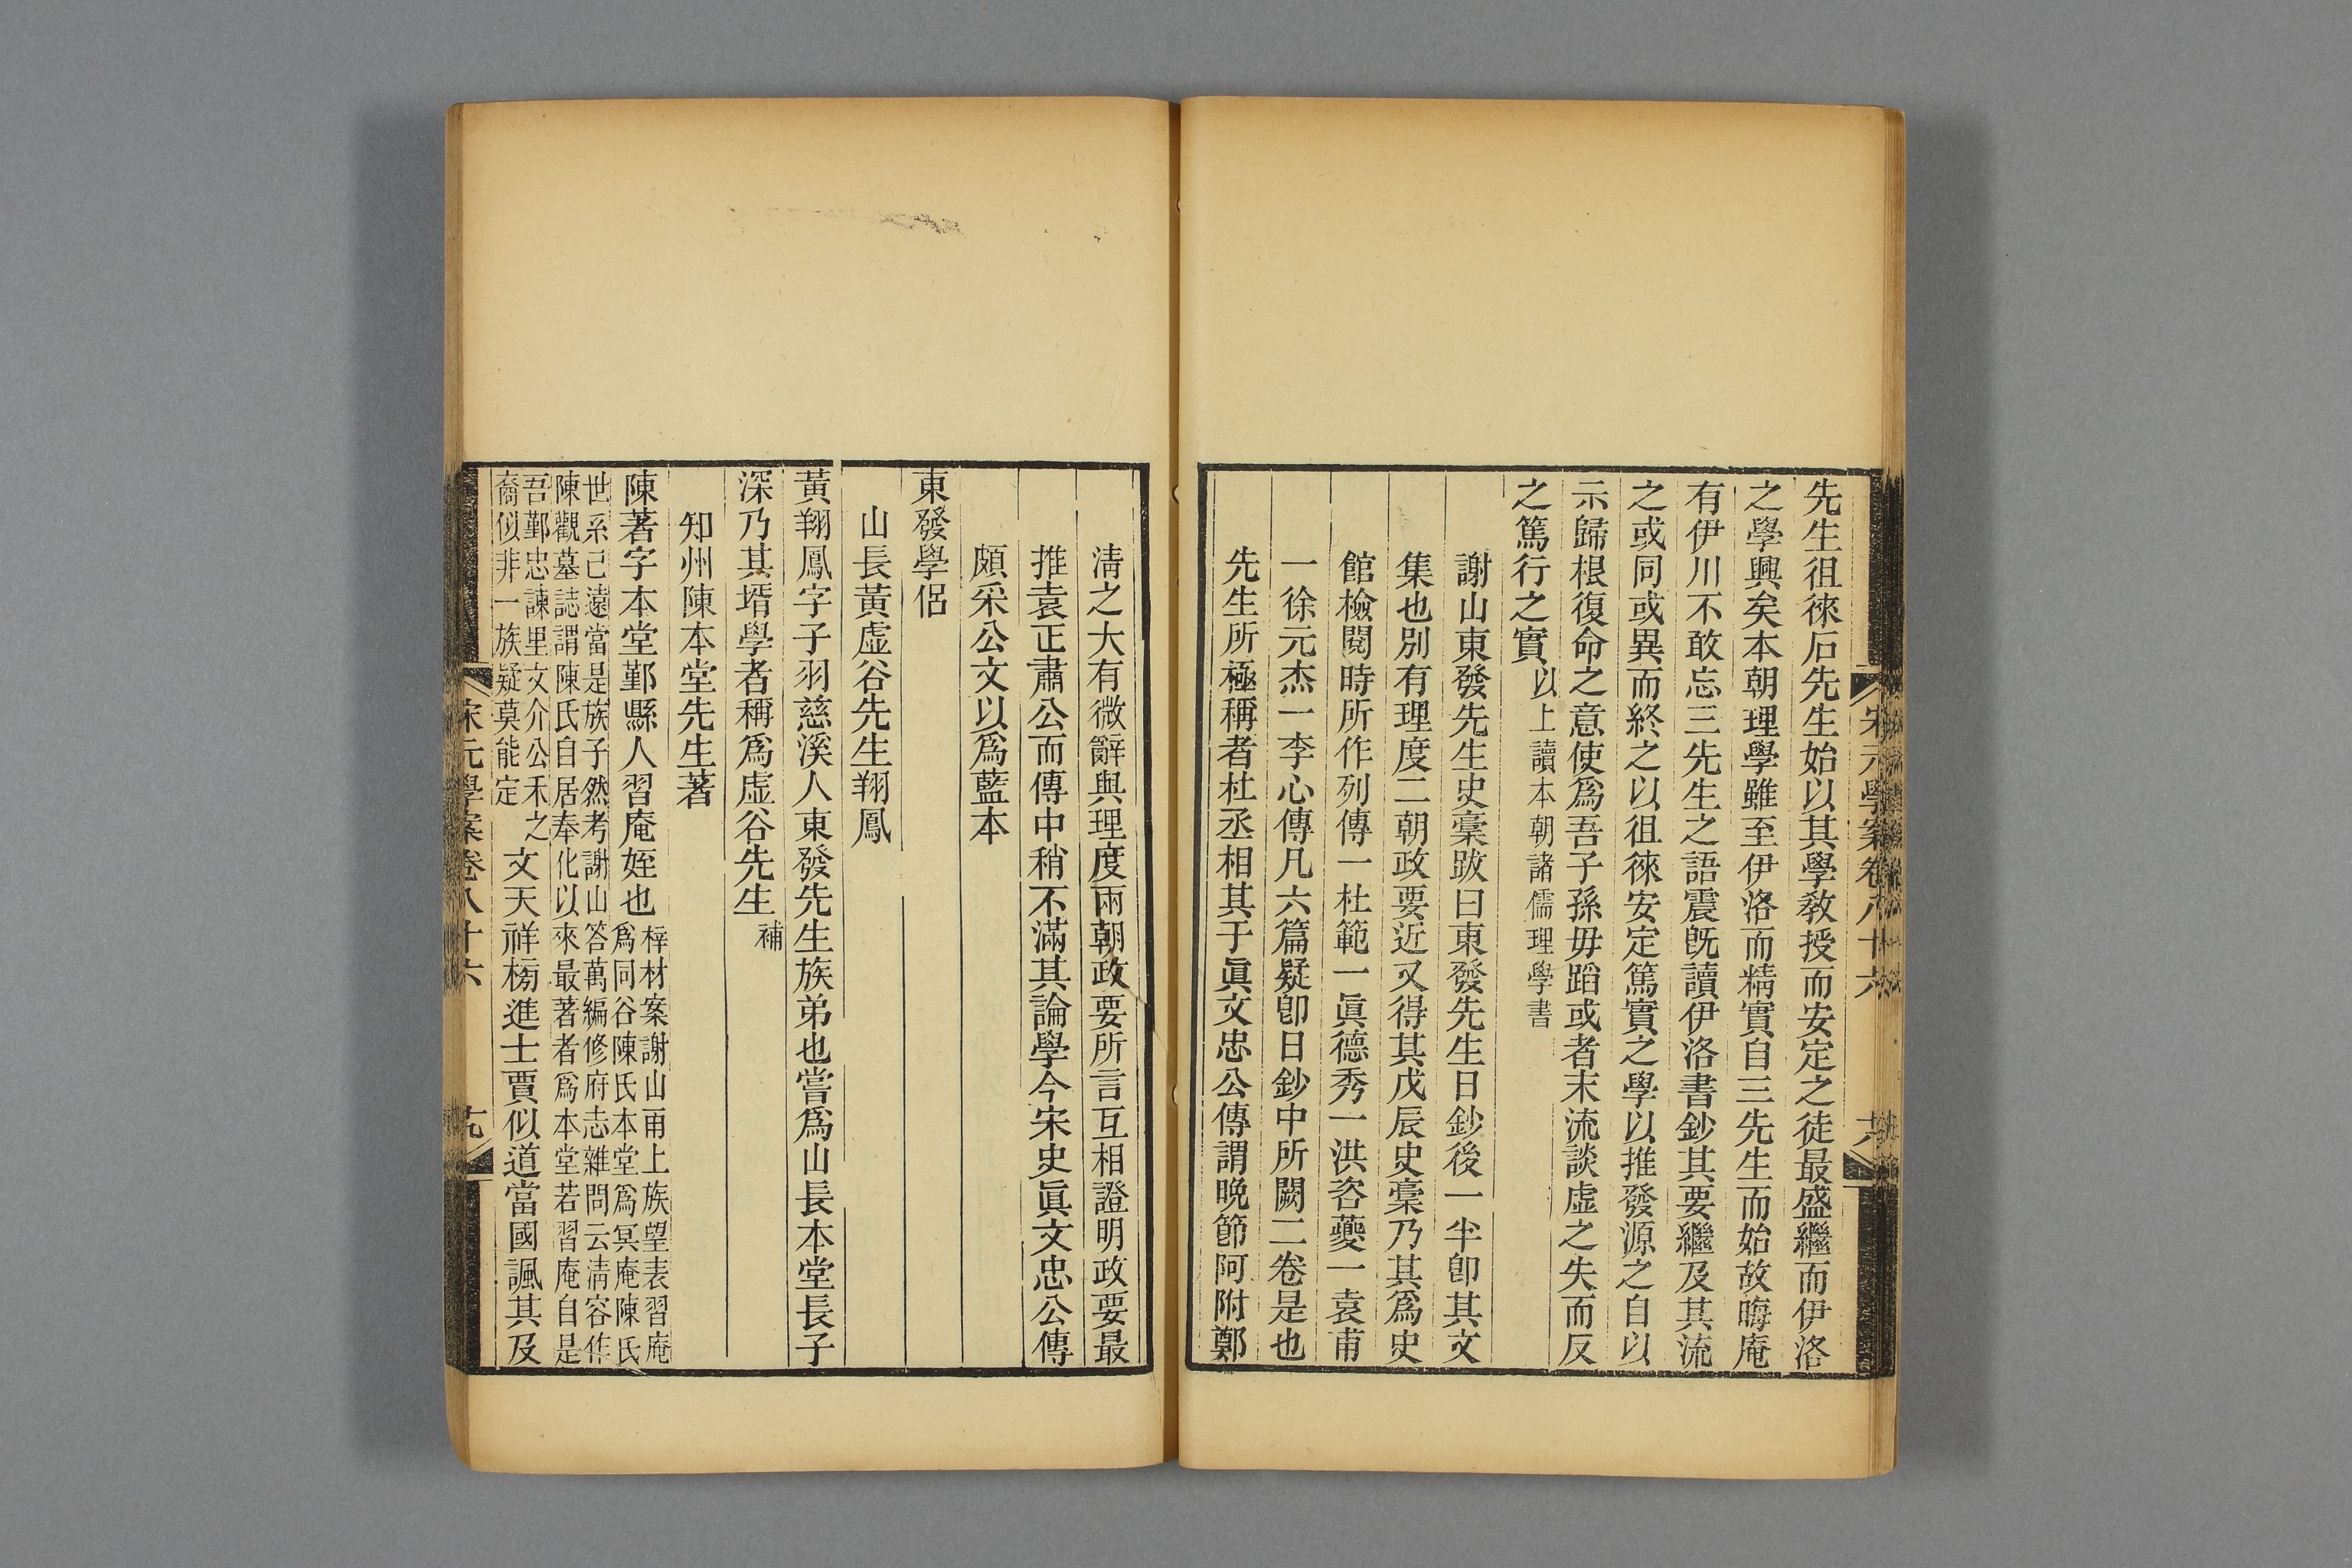 宋元學案卷八十六
先生徂徠石先生始以其學敎授而安定之徒最盛繼而伊洛
之學興矣本朝理學雖至伊洛而精實自三先生而始故晦庵
有伊川不敢忘三先生之語震旣讀伊洛書鈔其要繼及其流
之或同或異而終之以徂徠安定篤實之學以推發源之自以
示歸根復命之意使爲吾子孫毋蹈或者末流談虛之失而反
之篤行之實以上讀本朝諸儒理學書
謝山東發先生史稾跋曰東發先生日鈔後一半卽其文
集也別有理度二朝政要近又得其戊辰史稾乃其爲史
館檢閱時所作列傳一杜範一眞德秀一洪咨夔一袁甫
一徐元杰一李心傳凡六篇疑卽日鈔中所闕二卷是也
先生所極稱者杜丞相其于眞文忠公傳謂晚節阿附鄭
淸之大有微辭與理度兩朝政要所言互相證明政要最
推袁正肅公而傳中稍不滿其論學今宋史眞文忠公傳
頗采公文以爲藍本
東發學侶
山長黃虛谷先生翔鳳
黃翔鳳字子羽慈溪人東發先生族弟也嘗爲山長本堂長子
深乃其壻學者稱爲虛谷先生補
知州陳本堂先生著
陳著字本堂鄞縣人習庵姪也梓材案謝山甬上族望表習庵
爲同谷陳氏本堂爲冥庵陳氏
世系已遠當是族子然考謝山答萬編修府志雜問云淸容作
陳觀墓誌謂陳氏自居奉化以來最著者爲本堂若習庵自是
吾鄞忠諫里文介公禾之
裔似非一族疑莫能定文天祥榜進士賈似道當國諷其及
宋元學案卷八十六